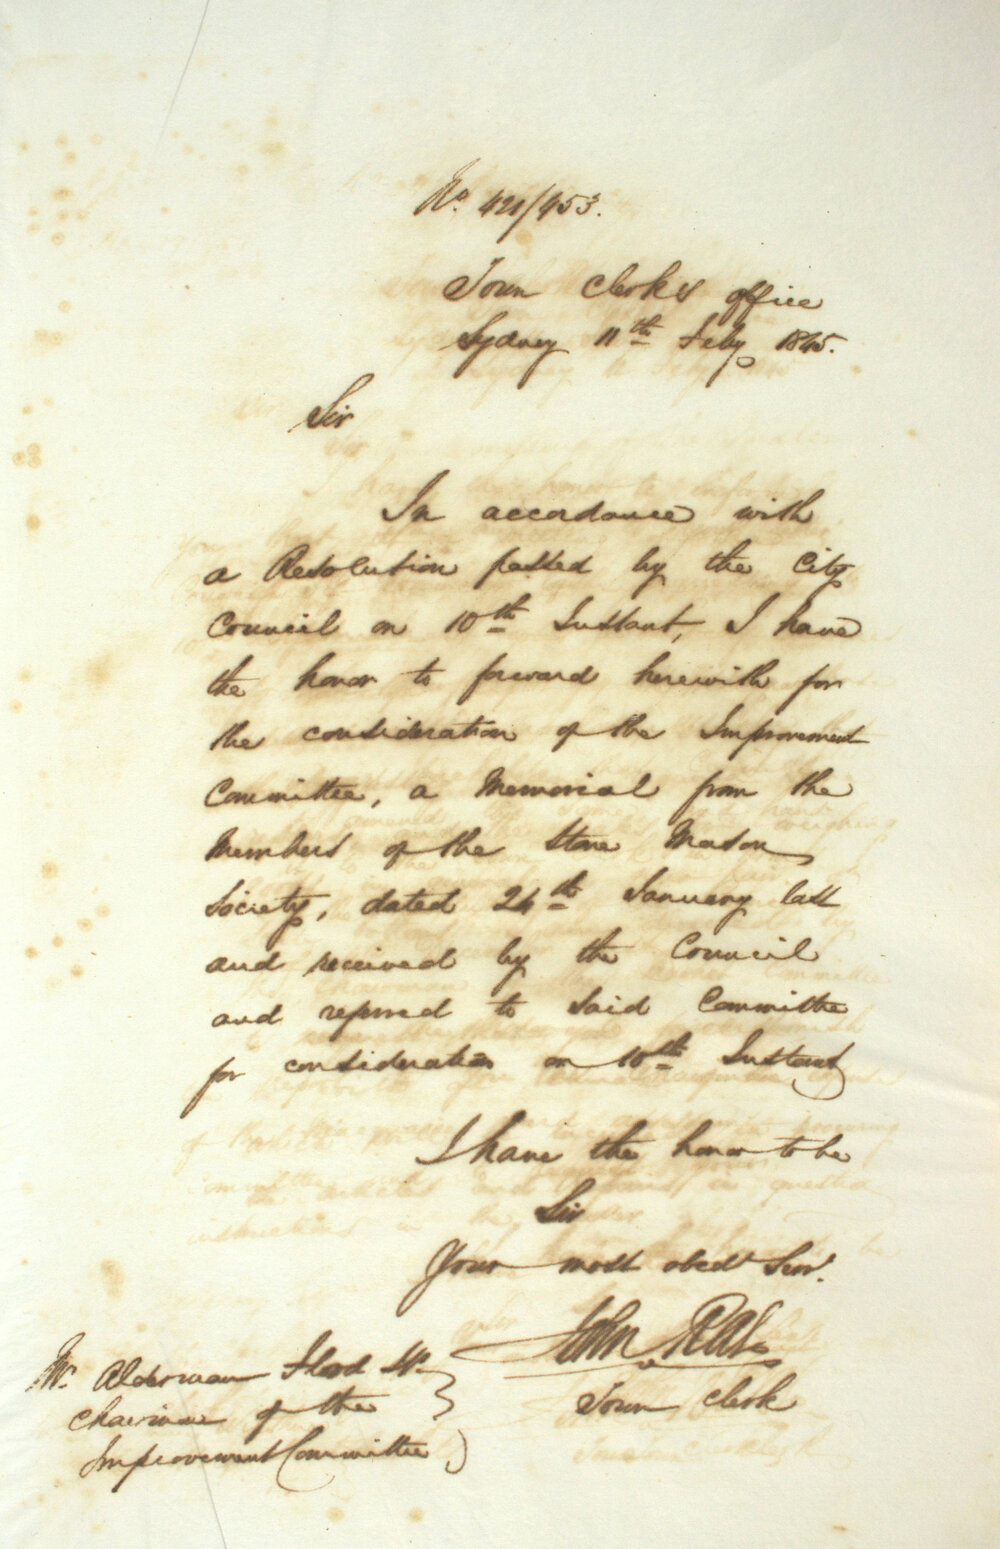 No. 421/453.
Town Clerk's office
Sydney 11th Feby 1845.
Sir
In accordance with
a Resolution passed by the City
Council on 10th Instant, I have
the honor to forward herewith for
the consideration of the Improvement
Committee, a Memorial from the
Members of the Stone Mason
Society, dated 24th January last
and received by the Council
and referred to said Committee
for consideration on 10th Instant
I have the honor to be
Sir
Your most obedt Servt.
John Rae
Town Clerk
Mr. Alderman Flood
Chairman of the
Improvement Committee